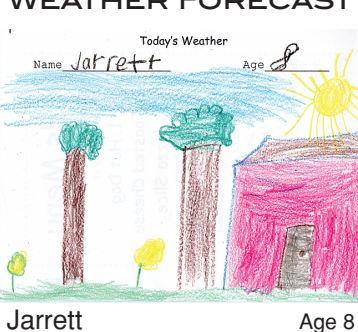 WEATHER FORECAST
Today's Weather
Name Jarrett Age 8
Jarrett Age 8